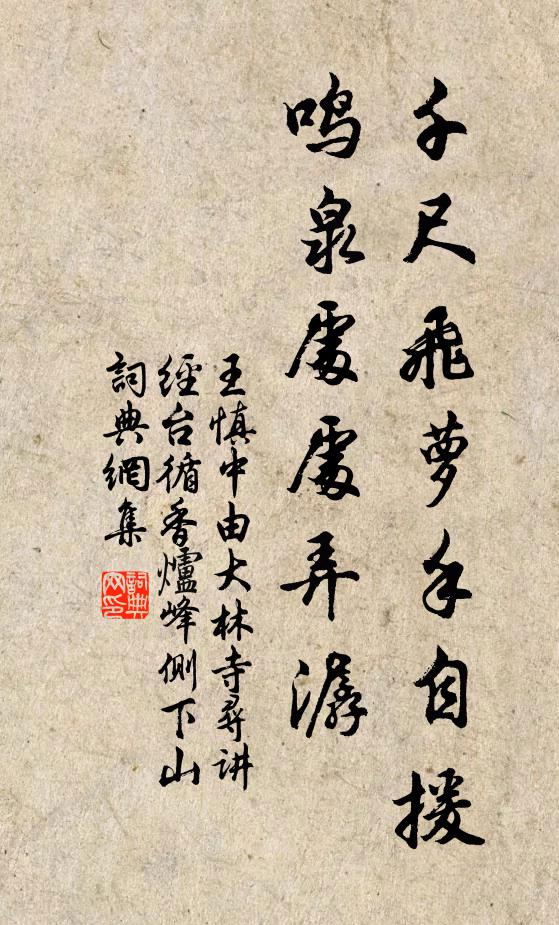 千尺飛萝手自援
鸣泉處處弄潺
王慎中由大林寺尋讲
經台循香爐峰側下山
詞典網集
詞典网印